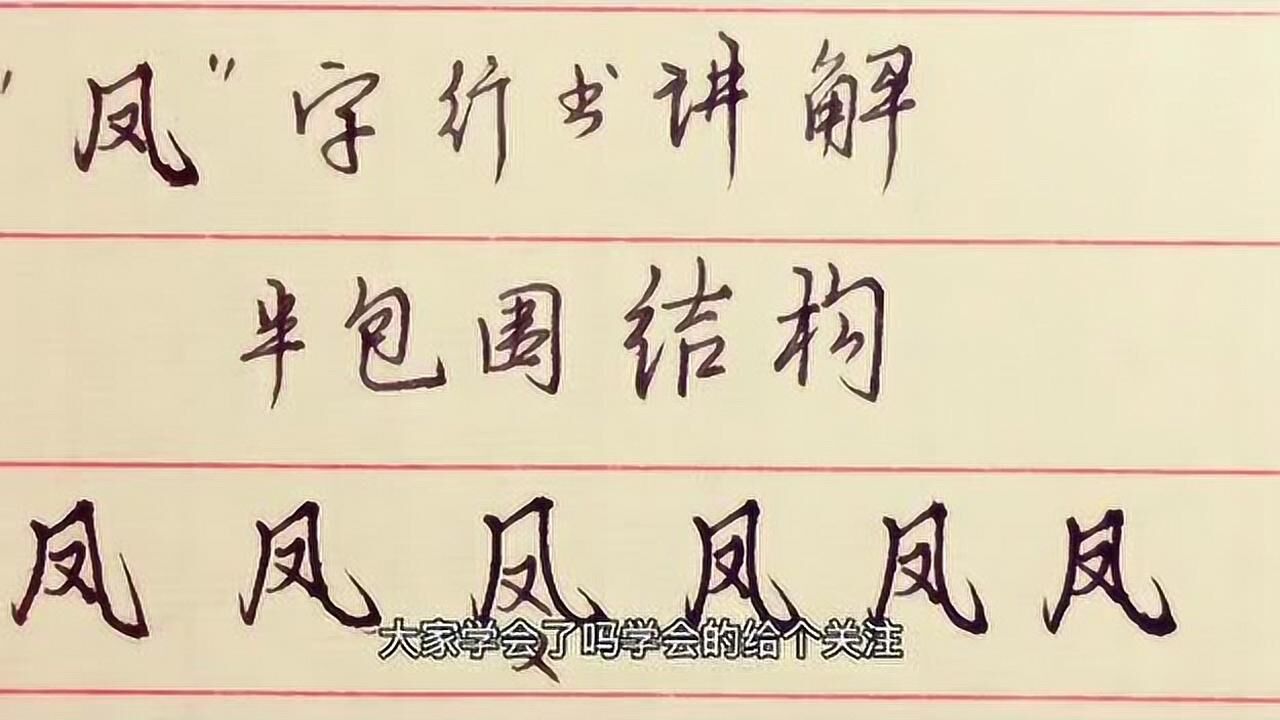 "凤"字行书讲解
半包围结构
凤 凤 凤 凤 凤 凤
又
大家学会了吗学会的给个关注